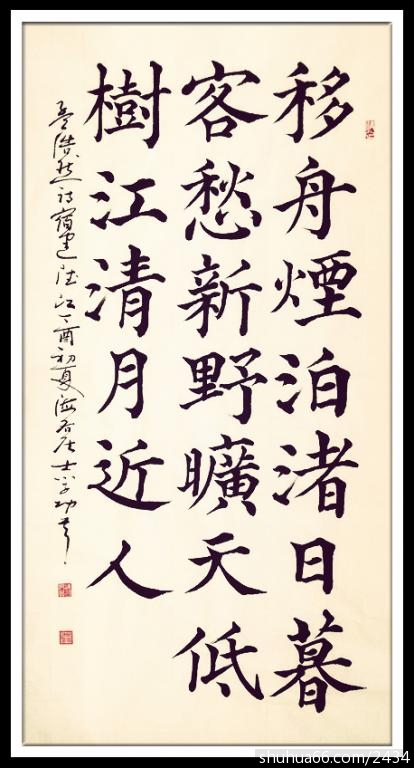 移舟煙泊渚日暮
客愁新野曠天低
樹江清月近人
孟浩然詩宿建德江丁酉初夏
shuhua66.com/2434